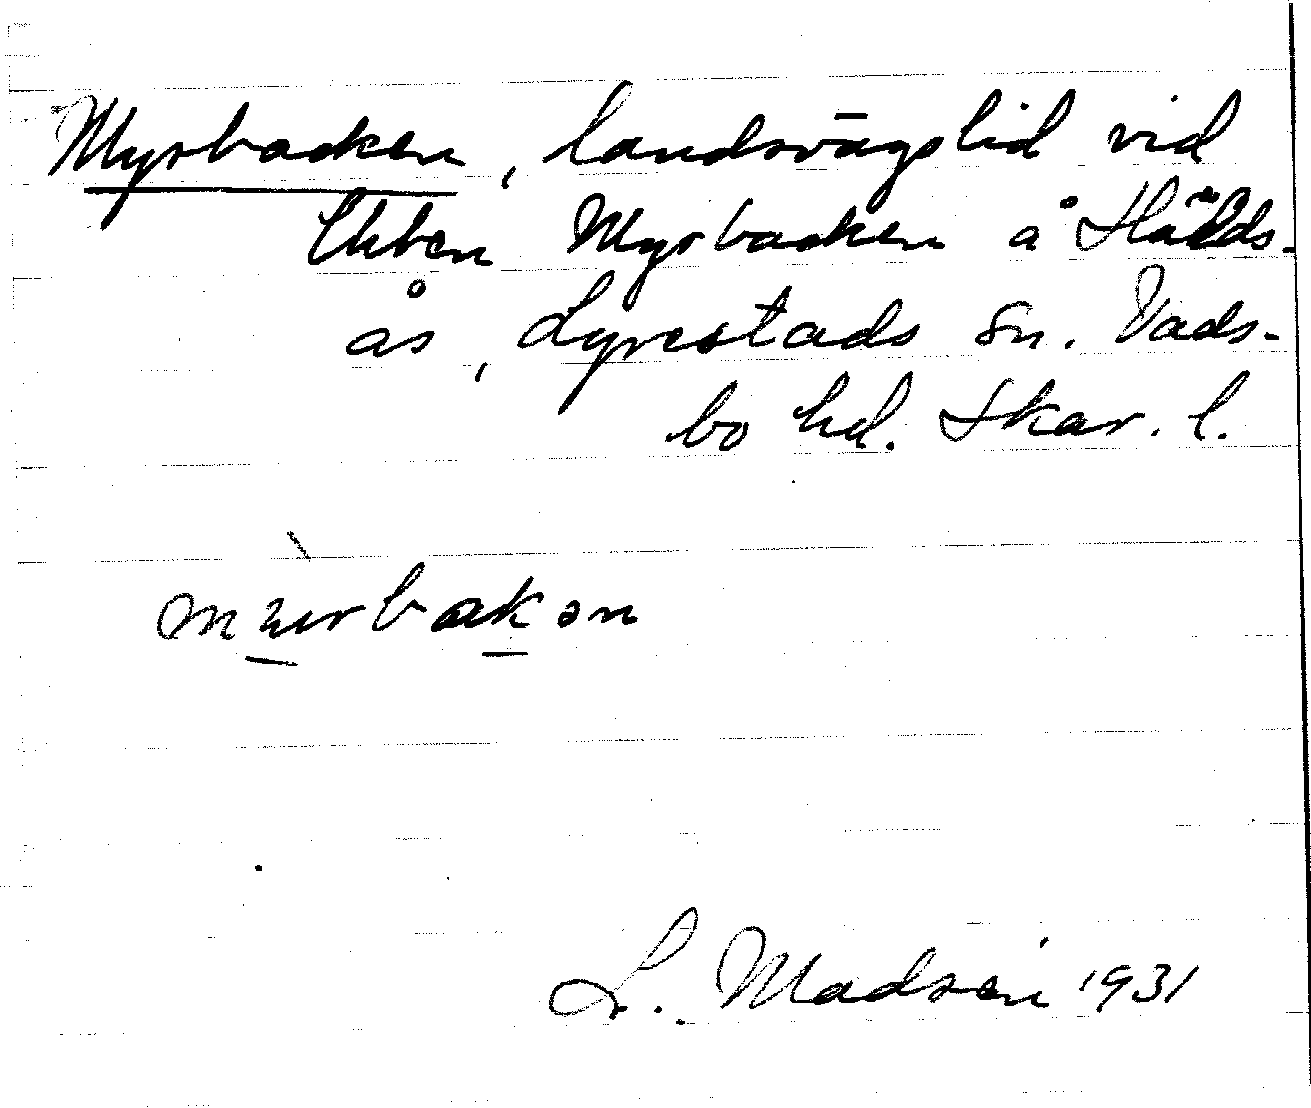 Myrbacken, landsvägslid vid
Myrbacken å Hälds-
ås, Lyrestads sn. Vads-
bo hd. Skar. l.
L. Madsén 1931